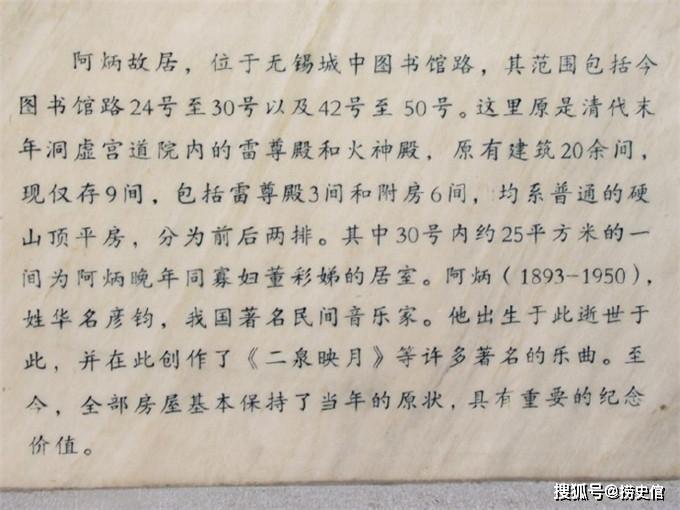 阿炳故居，位于无锡城中图书馆路，其范围包括今
图书馆路24号至30号以及42号至50号。这里原是清代末
年洞虚宫道院内的雷尊殿和火神殿，原有建筑20余间，
现仅存9间，包括雷尊殿3间和附房6间，均系普通的硬
山顶平房，分为前后两排。其中30号内约25平方米的一
间为阿炳晚年同寡妇董彩娣的居室。阿炳（1893-1950），
姓华名彦钧，我国著名民间音乐家。他出生于此逝世于
此，并在此创作了《二泉映月》等许多著名的乐曲。至
今，全部房屋基本保持了当年的原状，具有重要的纪念
价值。
搜狐号@捞史馆